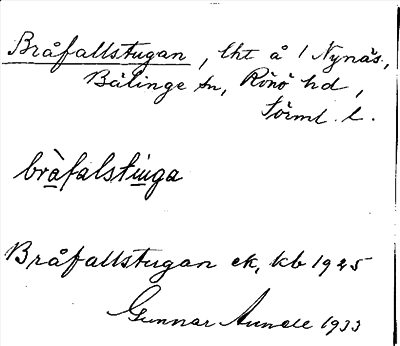 Bråfallstugan, lht å 1 Nynäs,
Bälinge sn, Rönö hd,
Sörml. l.
bråfalstuga
Bråfallstugan ek, kb 1925
Gunnar 1933